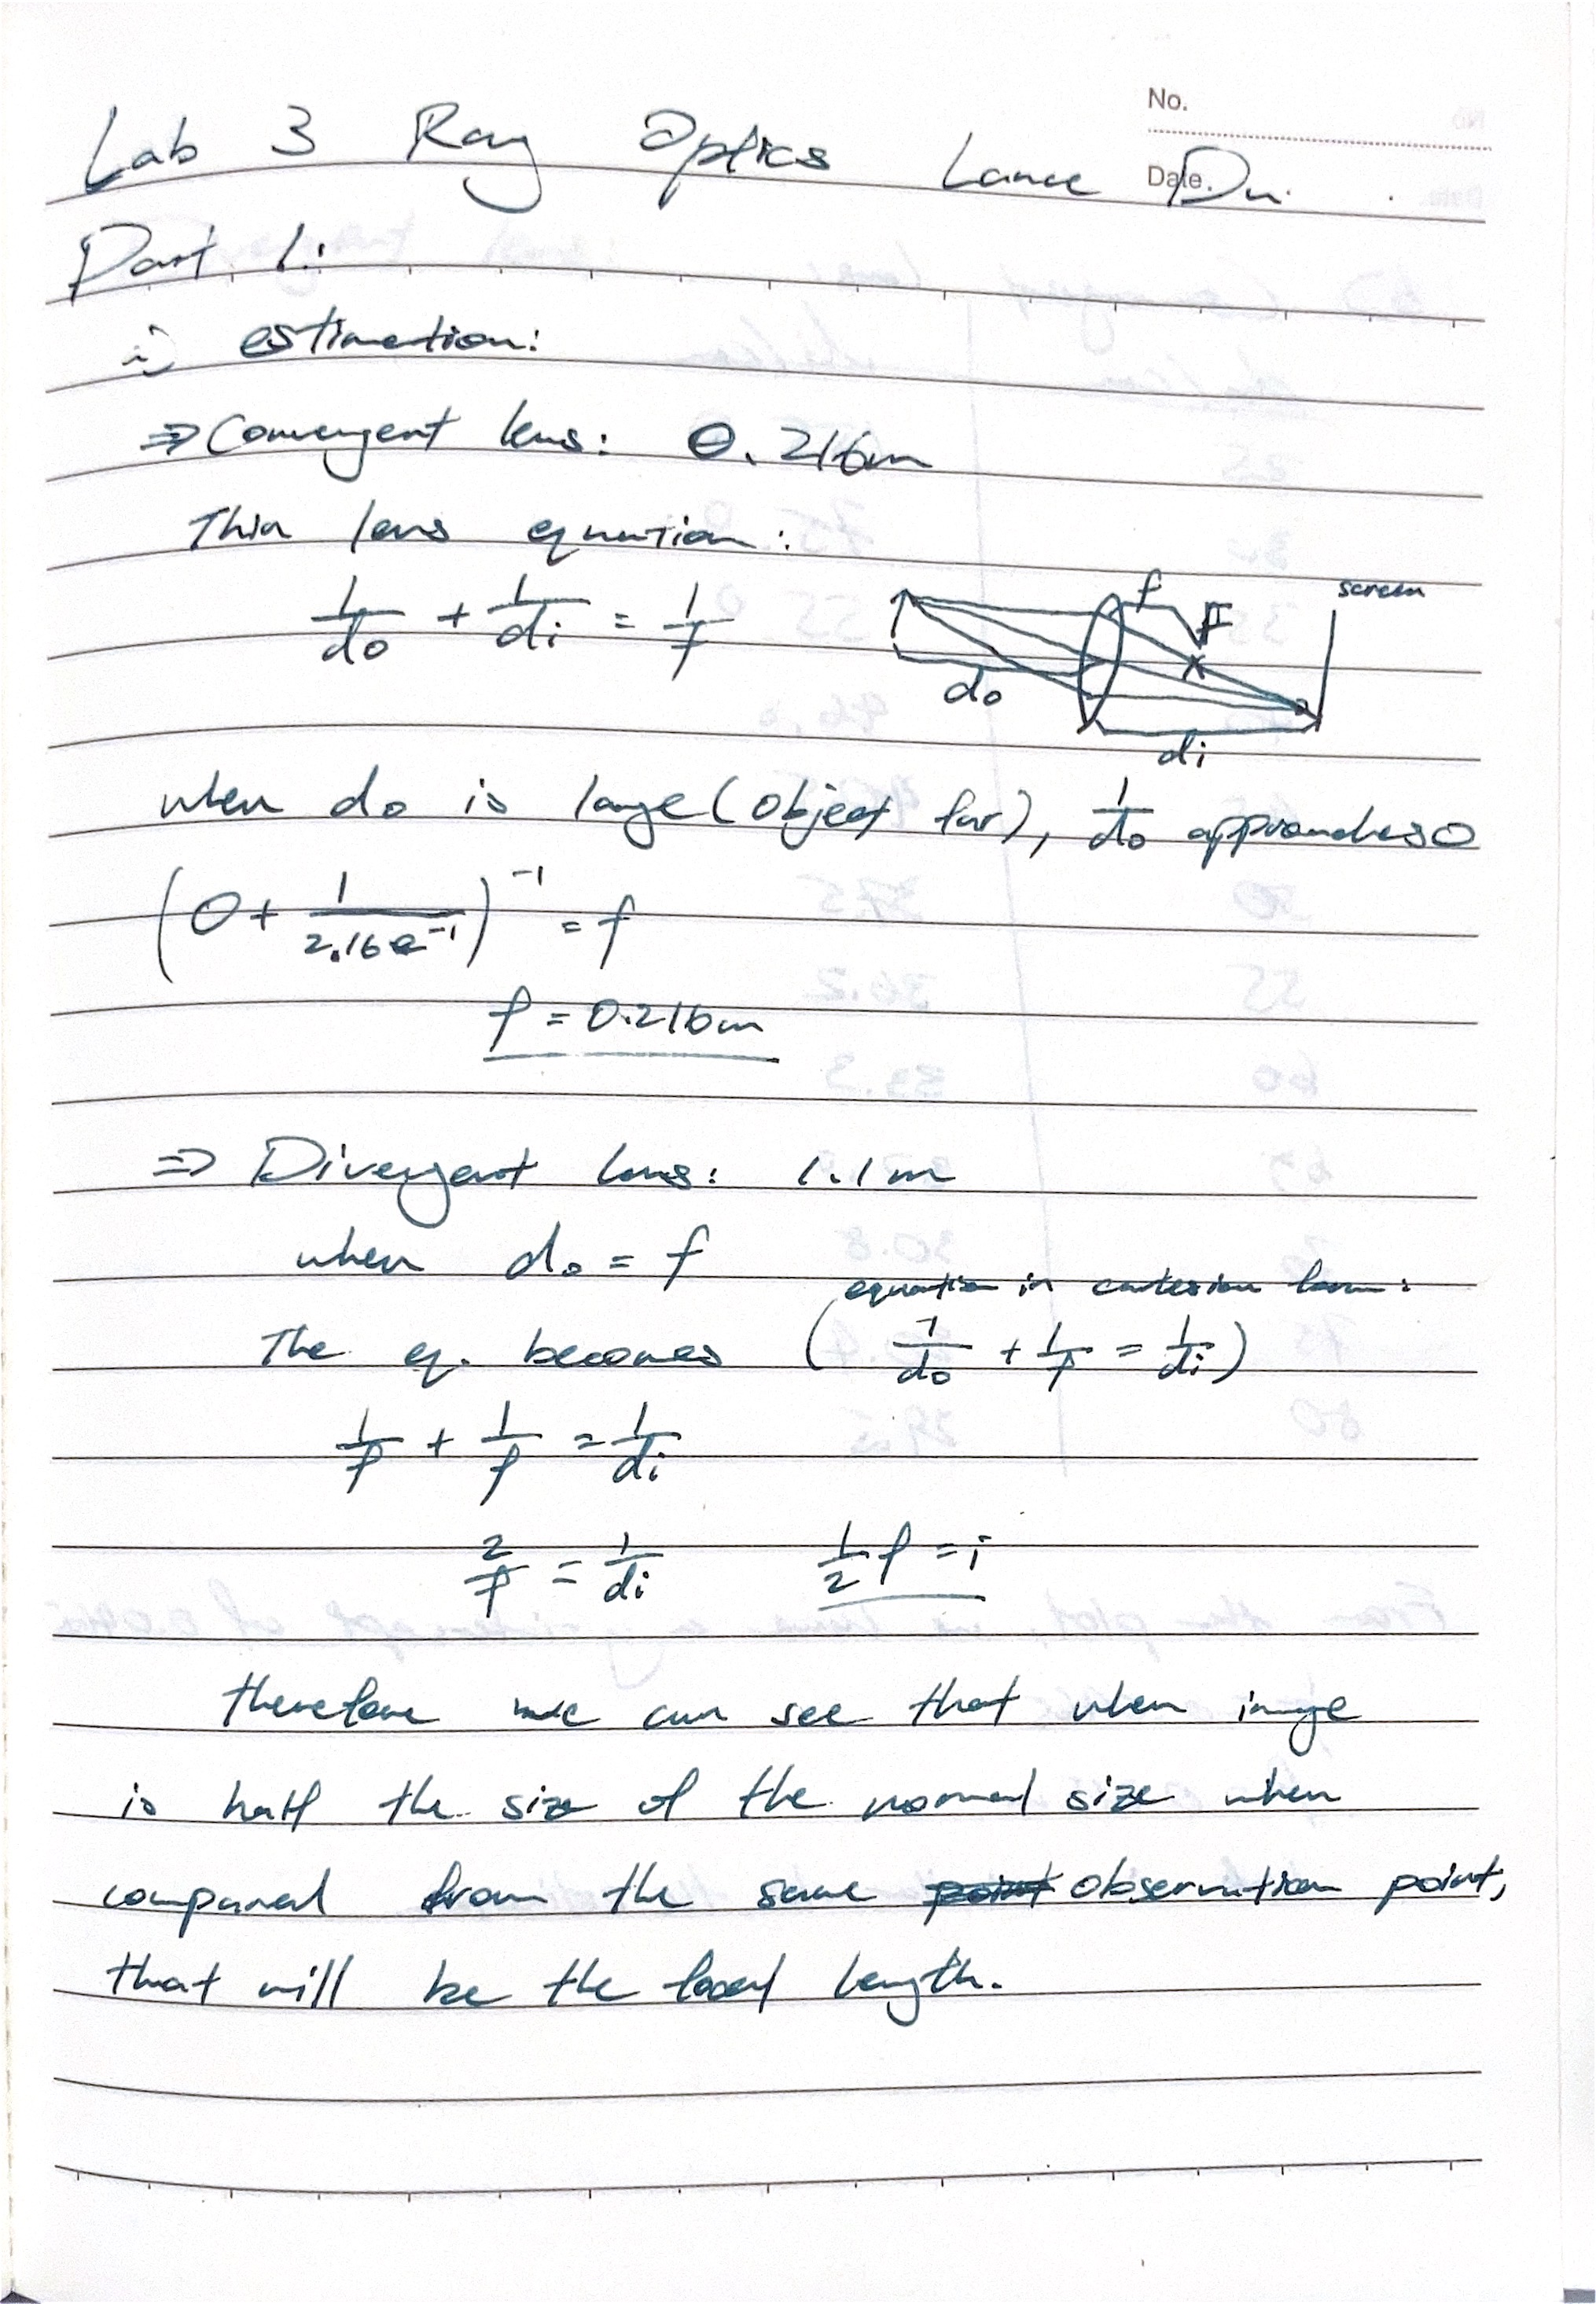 No.
Lab 3 Ray Optics Lance Du
Date.
Part 1:
i) estimation:
⇒ Convergent lens: 0.216m
Thin lens equation:
1/do + 1/di = 1/f
f F screen
do
di
when do is large (object far), 1/do approaches 0
(0 + 1/2.16e^-1)^-1 = f
f = 0.216m
⇒ Divergent lens: 1.1m
when do = f
equation in cartesian form:
The eq. becomes (1/do + 1/f = 1/di)
1/f + 1/f = 1/di
2/f = 1/di 1/2 f = i
therefore we can see that when image
is half the size of the normal size when
compared from the same point observation point,
that will be the focal length.